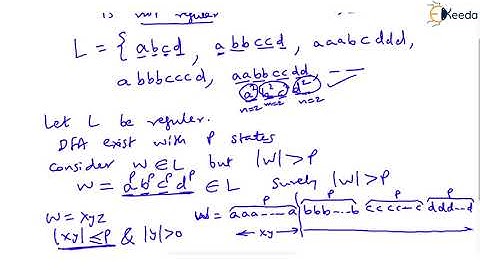 is not regular
Keeda
L = { abcd, abbccd, aaabcddd,
abbbcccd, aabbccdd, ---
a² b² c² d²
n=2 m=2 n=2
Let L be reguler.
DFA exist with P states
consider w ∈ L but |w| > P
w = aᵖ bᵖ cᵖ dᵖ ∈ L surely |w| > P
P P P P
w = xyz w = aaa----a bbb---b ccc--c ddd--d
|xy| ≤ P & |y|>0 ← xy →